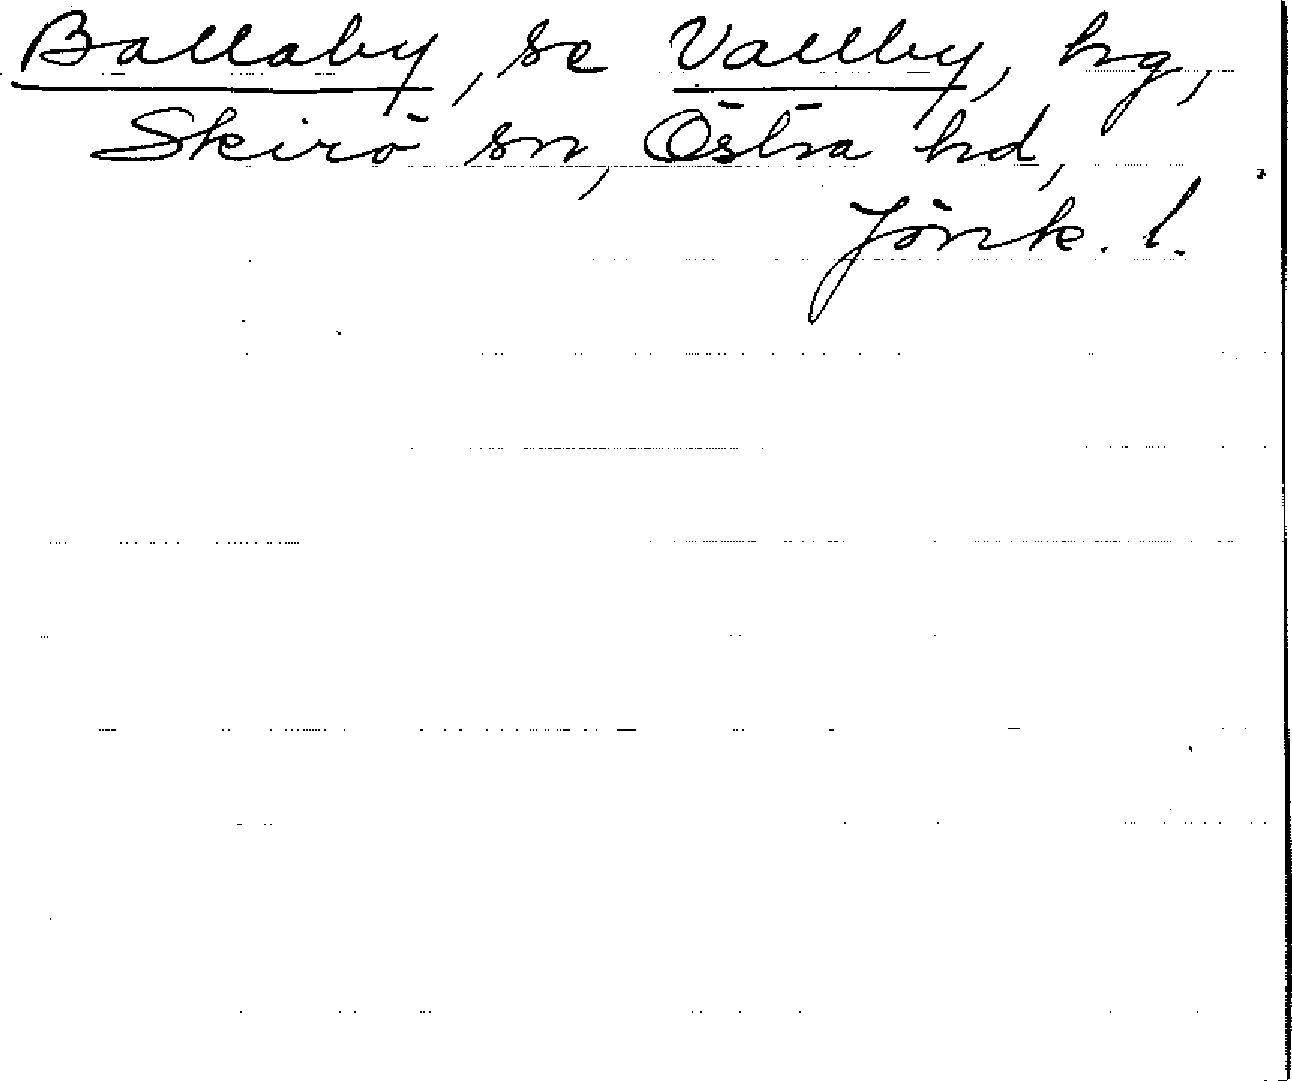 Ballaby, se Vallby, hg,
Skirö sn, Östra hd,
Jönk. l.